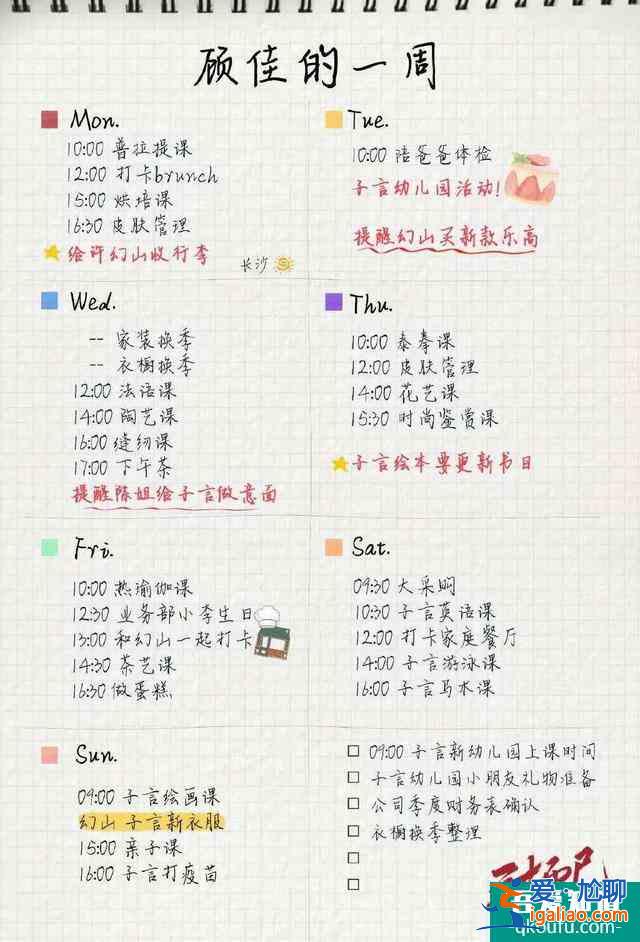 顾佳的一周
Mon.
10:00 普拉提课
12:00 打卡brunch
15:00 烘培课
16:30 皮肤管理
给许幻山收行李
长沙
Tue.
10:00 陪爸爸体检
子言幼儿园活动!
提醒幻山买新款乐高
Wed.
-- 家装换季
-- 衣橱换季
12:00 法语课
14:00 陶艺课
16:00 缝纫课
17:00 下午茶
提醒陈姐给子言做意面
Thu.
10:00 泰拳课
12:00 皮肤管理
14:00 花艺课
15:30 时尚鉴赏课
子言绘本要更新书目
Fri.
10:00 热瑜伽课
12:30 业务部小李生日
13:00 和幻山一起打卡
14:30 茶艺课
16:30 做蛋糕
Sat.
09:30 大采购
10:30 子言英语课
12:00 打卡家庭餐厅
14:00 子言游泳课
16:00 子言马术课
Sun.
09:00 子言绘画课
幻山 子言新衣服
15:00 亲子课
16:00 子言打疫苗
09:00 子言新幼儿园上课时间
子言幼儿园小朋友礼物准备
公司季度财务表确认
衣橱换季整理
三十而已
爱尬聊
igaliao.com
qkoufu.com